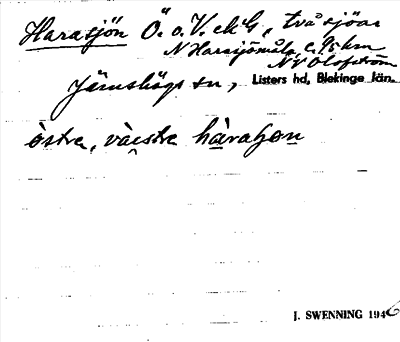 Harasjön Ö. o. V. ek G., två sjöar
N Harasjömåla, c. 9,5 km
NV Olofström
Jämshögs sn, Listers hd, Blekinge län.
östra, västra
J. SWENNING 1946